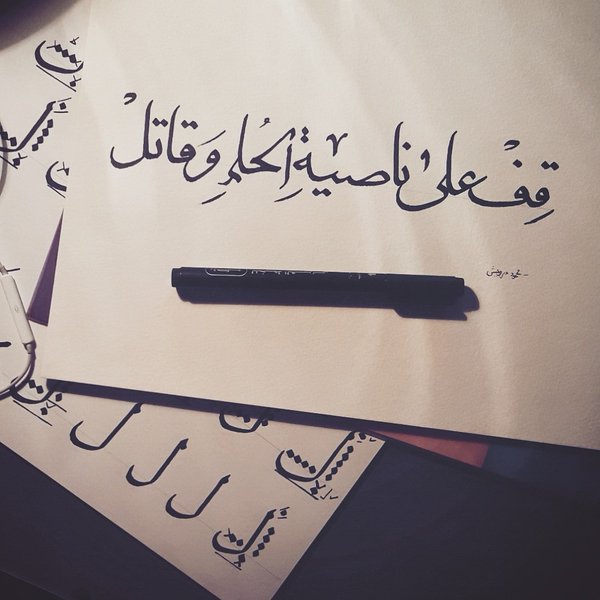 قِفْ على ناصيةِ الحُلمِ وَقاتلْ
- محمود درويش